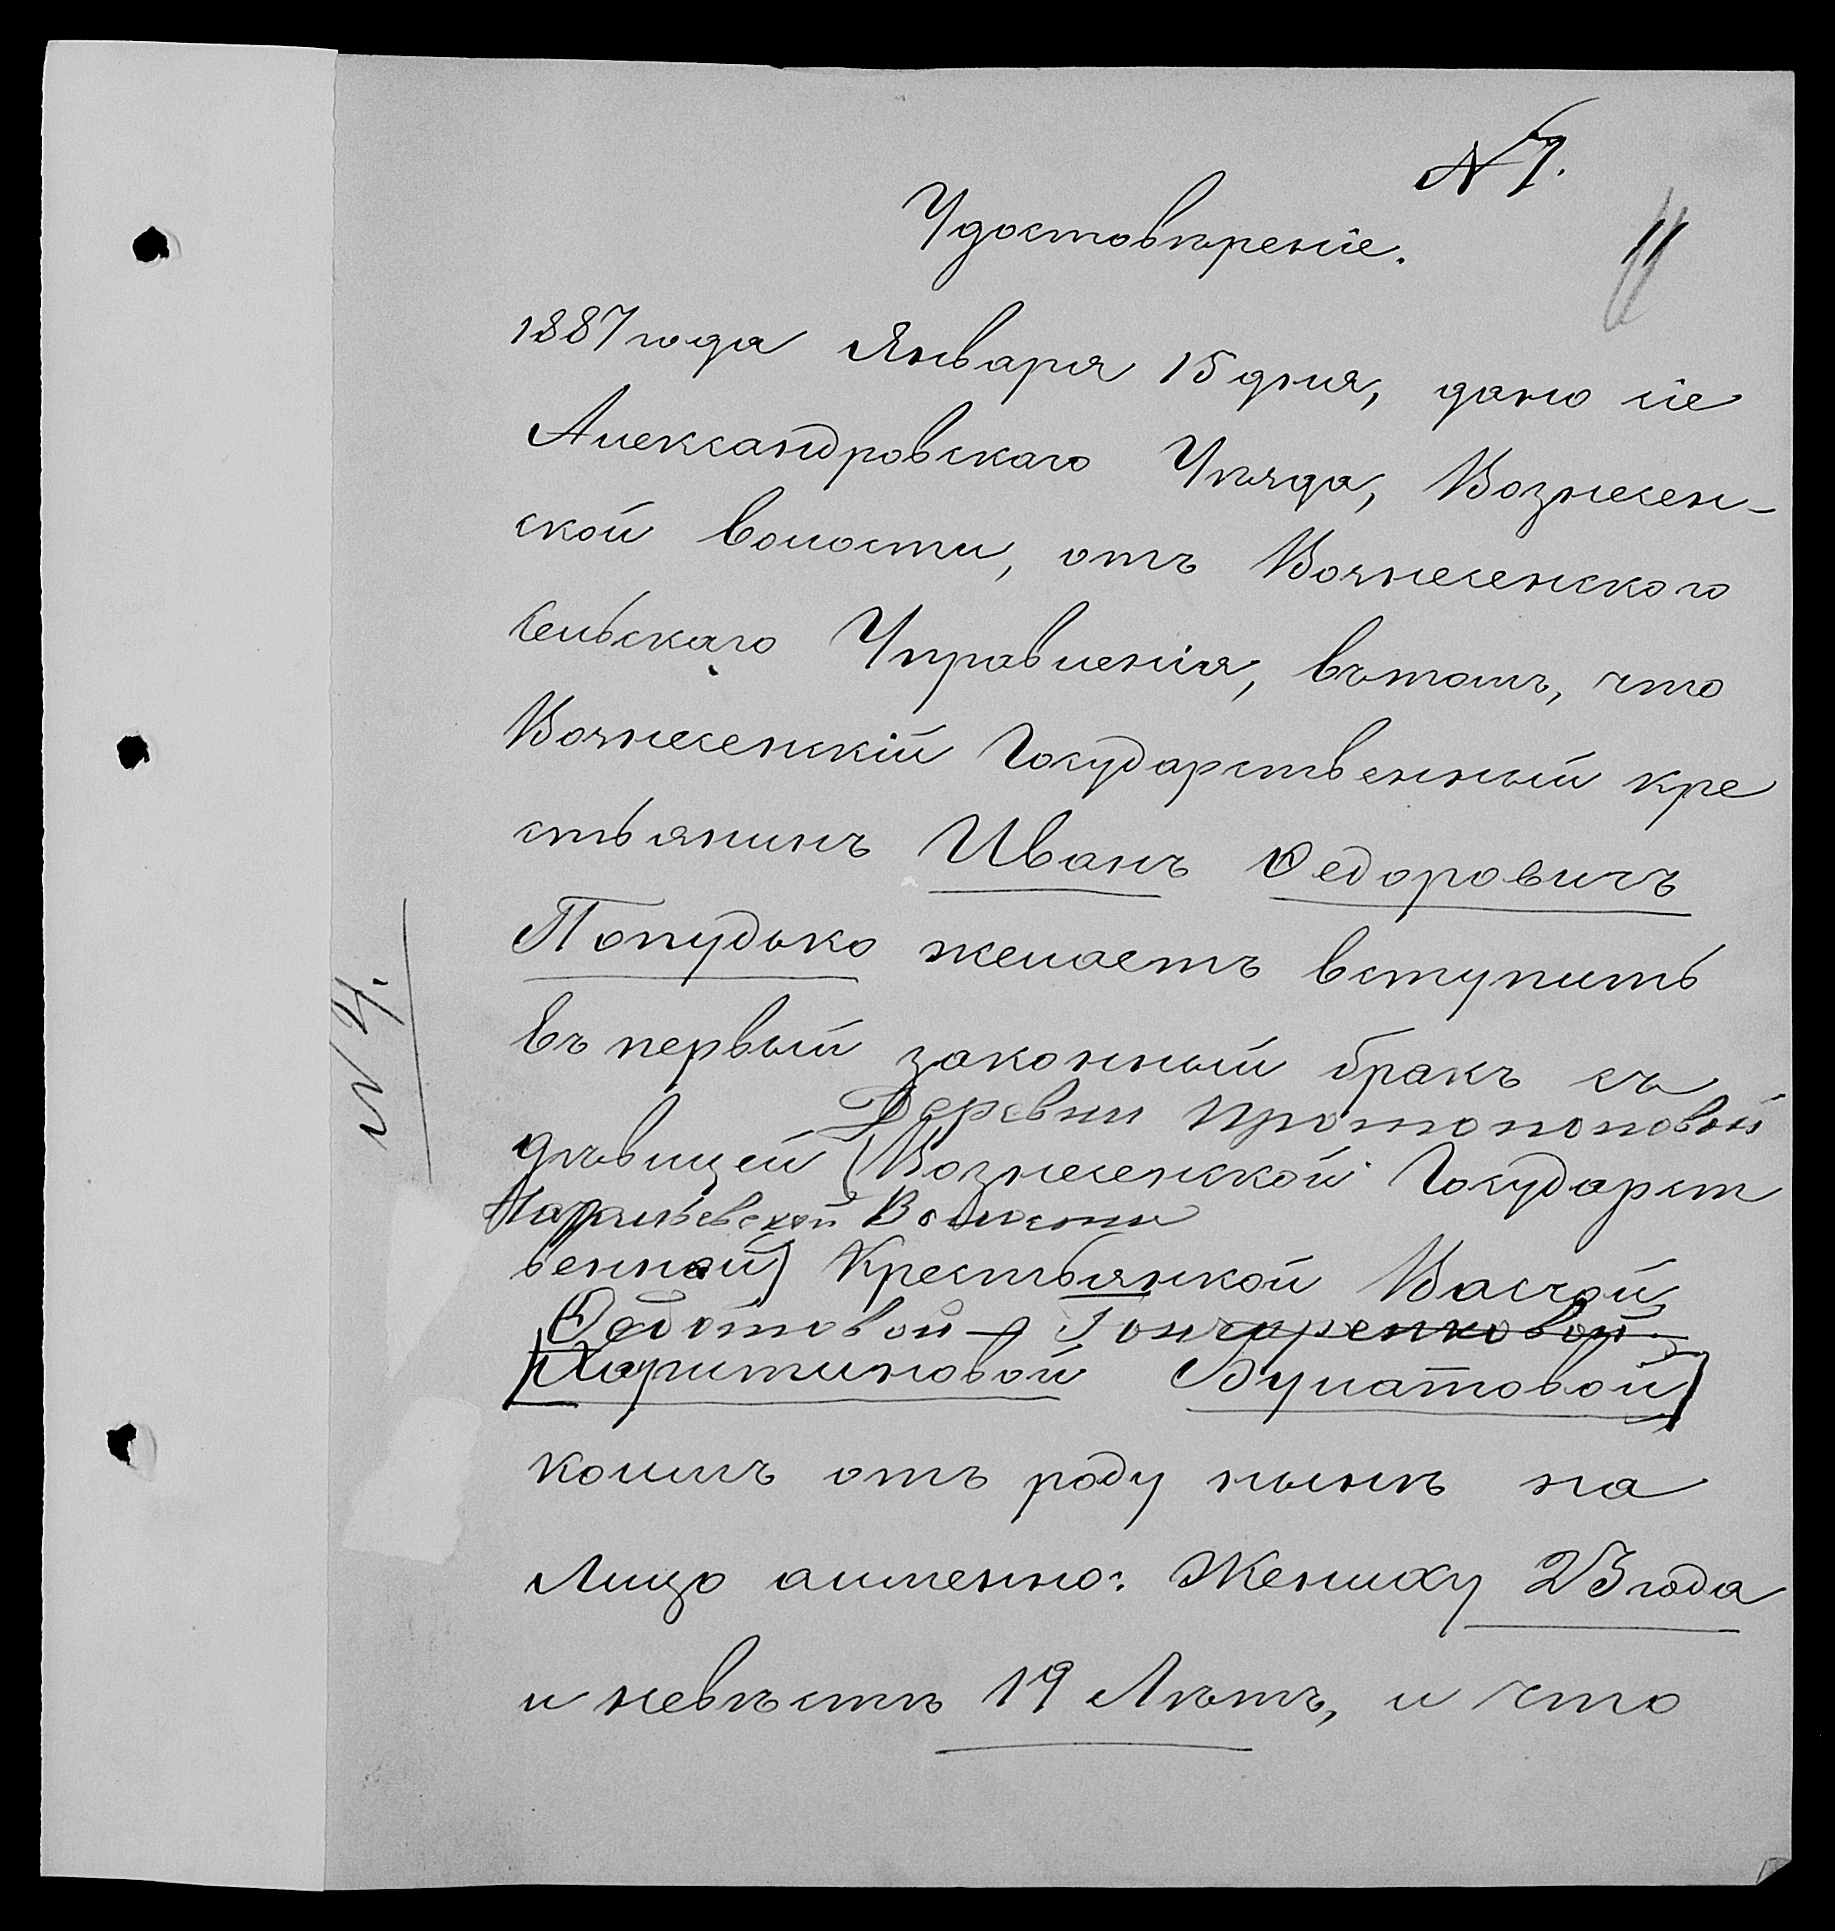 N 7.
Удостовѣреніе.
11
1887 года Января 15 дня, дано сіе
Александровскаго Уѣзда, Вознесен-
ской волости, отъ Вознесенского
Сельскаго Управленія, въ томъ, что
Вознесенскій Государственный кре
стьянинъ Иванъ Ѳедоровичъ
Попудько желаетъ вступить
въ первый законный бракъ съ
Деревни Протопоповой
дѣвицей (Вознесенской Государст
Натальевской Волости
венной) Крестьянкой Вассой
Ѳедотовой Гончаренковой
(Харитиновой Булатовой)
коимъ отъ роду нынѣ на
Лицо аименно: Жениху 23 года
и невѣстѣ 19 Лѣтъ, и что
N 4.